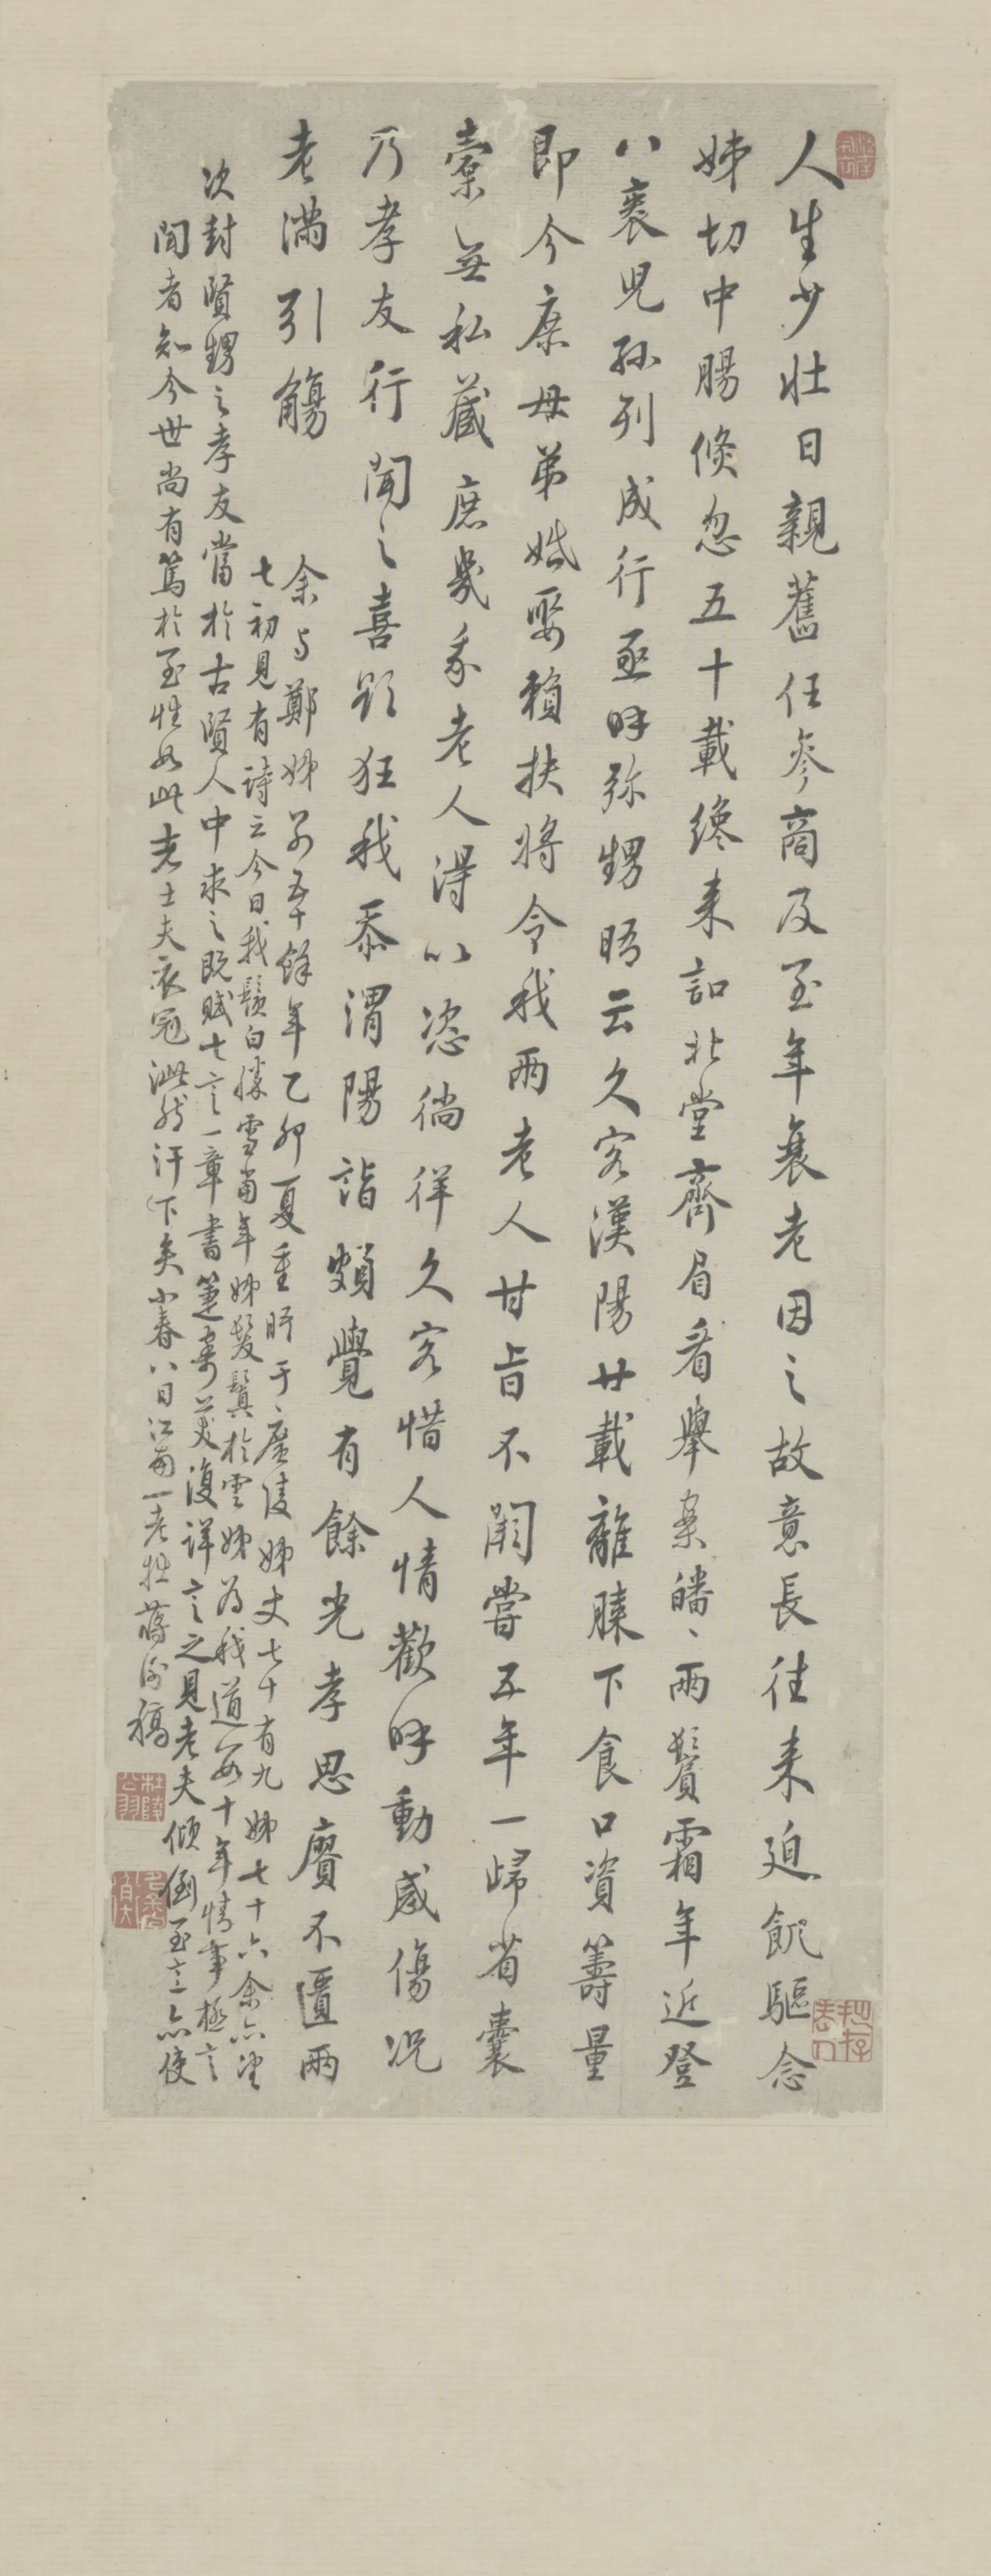 人生少壯日親舊任參商及至年衰老因之故意長往來迫飢驅念
姊切中腸倐忽五十載纔来詔北堂齊眉看舉案皤〻兩鬢霜年近登
八袠児孫列成行亟呼弥甥晤云久客漢陽廿載離膝下食口資籌量
即今康母弟婚娶賴扶將令我兩老人甘旨不闕嘗五年一歸省囊
橐無私蔵庶幾我老人得以恣徜徉久客惜人情歡呼動感傷况
乃孝友行聞之喜欲狂我忝渭陽誼頗覺有餘光孝思賡不匱兩
老滿引觴
余与鄭姊別五十餘年乙卯夏重晤于廣陵姊丈七十有九姊七十六余六望
七初見有詩云今日我鬚白勝雪當年姊髮鬒於雲姊为我道數十年情事極言
次封賢甥之孝友當於古賢人中求之既賦七言一章書箑寄美復詳言之見老夫傾倒至意亦使
聞者知今世尚有篤於至性如此者士夫衣冠泚然汗下矣小春八日江南一老牲蔣 稿
杜陵